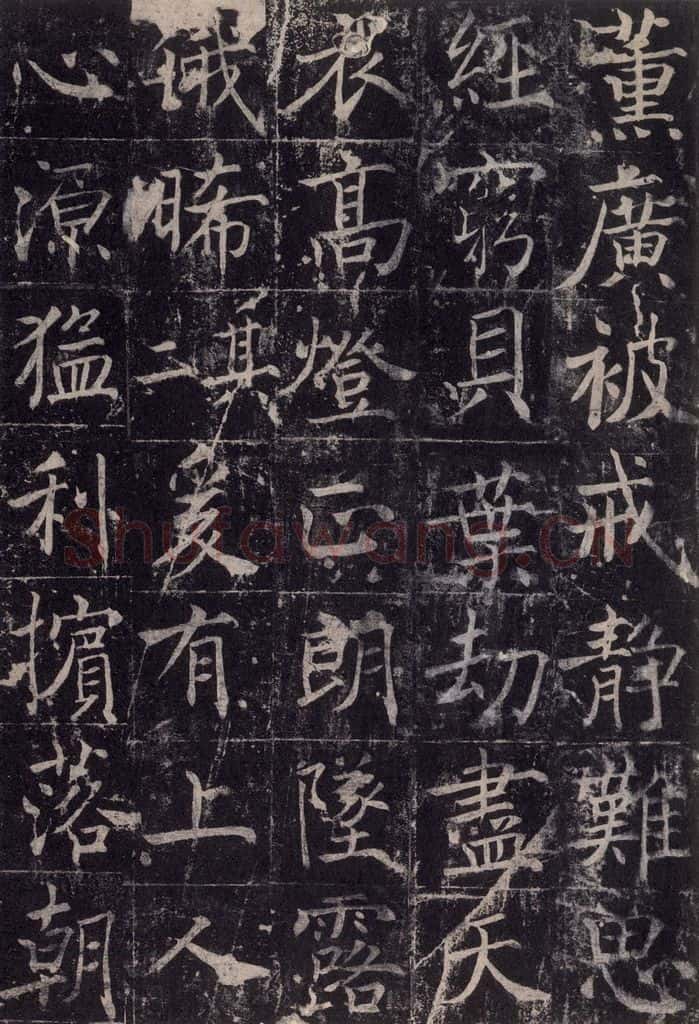 薰廣被戒靜難思
經窮貝葉劫盡天
衣高燈正朗墜露
俄晞其二爰有上人
心源猛利擯落朝
Shufawang.CN